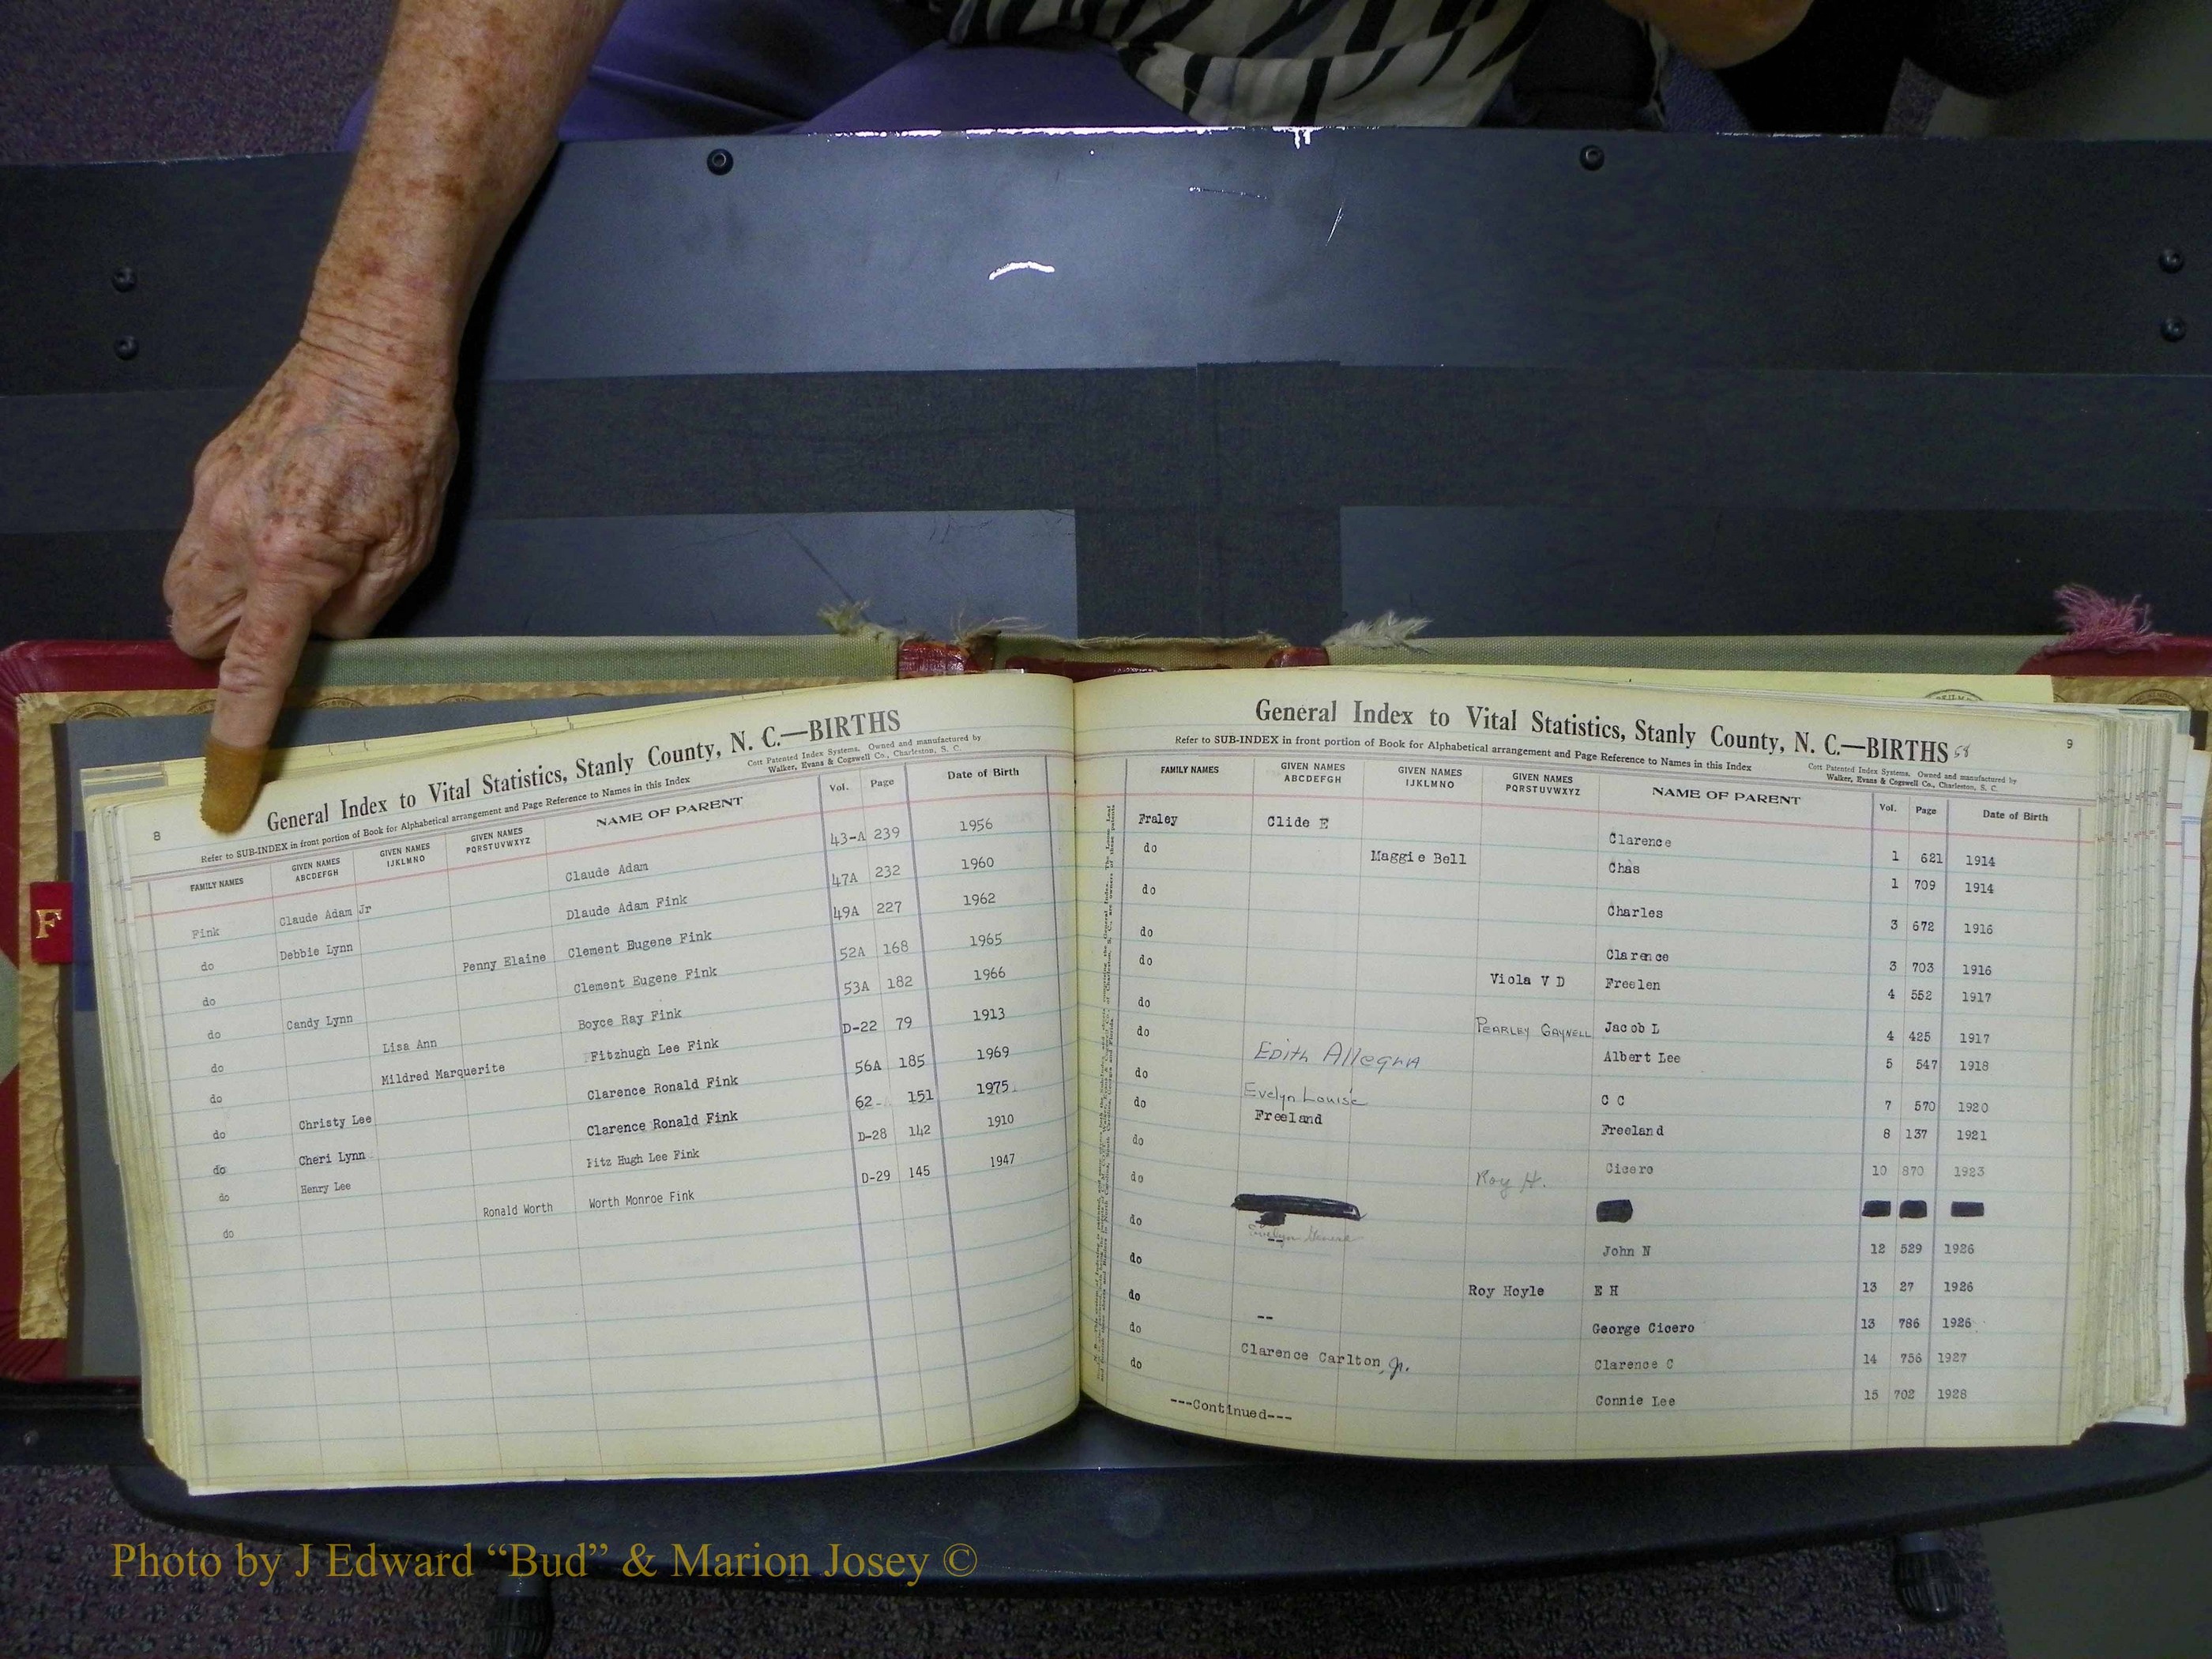 8
General Index to Vital Statistics, Stanly County, N. C.—BIRTHS
Refer to SUB-INDEX in front portion of Book for Alphabetical arrangement and Page Reference to Names in this Index
Cott Patented Index Systems. Owned and manufactured by
Walker, Evans & Cogswell Co., Charleston, S. C.
FAMILY NAMES GIVEN NAMES ABCDEFGH GIVEN NAMES IJKLMNO GIVEN NAMES PQRSTUVWXYZ NAME OF PARENT Vol. Page Date of Birth
Fink Claude Adam Jr Claude Adam 43-A 239 1956
do Debbie Lynn Dlaude Adam Fink 47A 232 1960
do Penny Elaine Clement Eugene Fink 49A 227 1962
do Candy Lynn Clement Eugene Fink 52A 168 1965
do Lisa Ann Boyce Ray Fink 53A 182 1966
do Mildred Marquerite Fitzhugh Lee Fink D-22 79 1913
do Christy Lee Clarence Ronald Fink 56A 185 1969
do Cheri Lynn Clarence Ronald Fink 62 151 1975
do Henry Lee Fitz Hugh Lee Fink D-28 142 1910
do Ronald Worth Worth Monroe Fink D-29 145 1947
F
General Index to Vital Statistics, Stanly County, N. C.—BIRTHS 58
9
Refer to SUB-INDEX in front portion of Book for Alphabetical arrangement and Page Reference to Names in this Index
Cott Patented Index Systems. Owned and manufactured by
Walker, Evans & Cogswell Co., Charleston, S. C.
FAMILY NAMES GIVEN NAMES ABCDEFGH GIVEN NAMES IJKLMNO GIVEN NAMES PQRSTUVWXYZ NAME OF PARENT Vol. Page Date of Birth
Fraley Clide E Clarence 1 621 1914
do Maggie Bell Chas 1 709 1914
do Charles 3 672 1916
do Clarence 3 703 1916
do Viola V D Freelen 4 552 1917
do PEARLEY GAYNELL Jacob L 4 425 1917
do Edith Allegra Albert Lee 5 547 1918
do Evelyn Louise C C 7 570 1920
do Freeland Freeland 8 137 1921
do Roy H. Cicero 10 870 1923
do
do Evelyn -- John N 12 529 1926
do Roy Hoyle E H 13 27 1926
do -- George Cicero 13 786 1926
do Clarence Carlton, Jr. Clarence C 14 756 1927
do Connie Lee 15 702 1928
---Continued---
Photo by J Edward “Bud” & Marion Josey ©